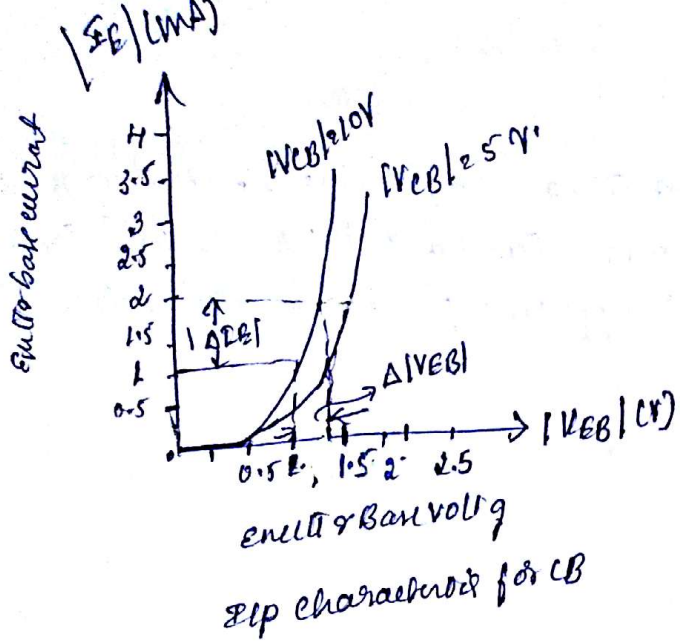 |IE| (mA)
Emitter base current
4
3.5
3
2.5
2
1.5
1
0.5
|VCB|=10V
|VCB|=5V.
|ΔIE|
Δ|VEB|
0.5 1. 1.5 2 2.5
|VEB| (V)
Emitter Base voltg
I/p characteristic for CB